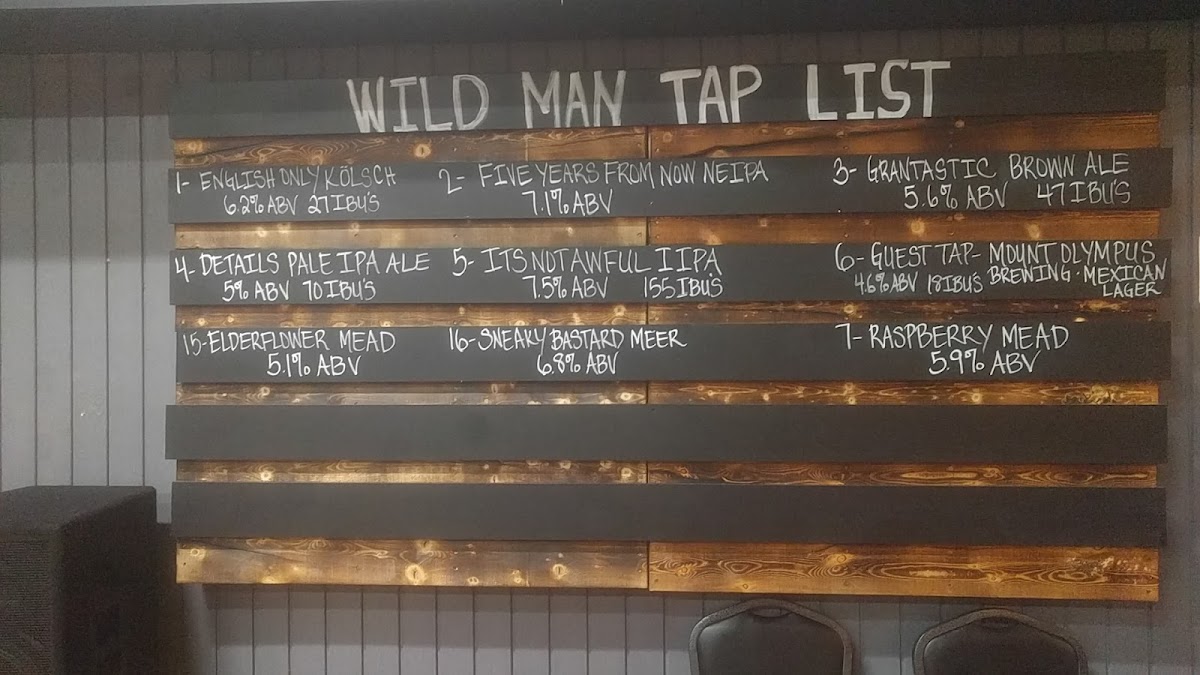 WILD MAN TAP LIST
1- ENGLISH ONLY KÖLSCH
6.2% ABV 27 IBU'S
2- FIVE YEARS FROM NOW NEIPA
7.1% ABV
3- GRANTASTIC BROWN ALE
5.6% ABV 47 IBU'S
4- DETAILS PALE IPA ALE
5% ABV 70 IBU'S
5- ITS NOT AWFUL IIPA
7.5% ABV 155 IBU'S
6- GUEST TAP- MOUNT OLYMPUS
4.6% ABV 18 IBU'S BREWING · MEXICAN
LAGER
15- ELDERFLOWER MEAD
5.1% ABV
16- SNEAKY BASTARD MEER
6.8% ABV
7- RASPBERRY MEAD
5.9% ABV